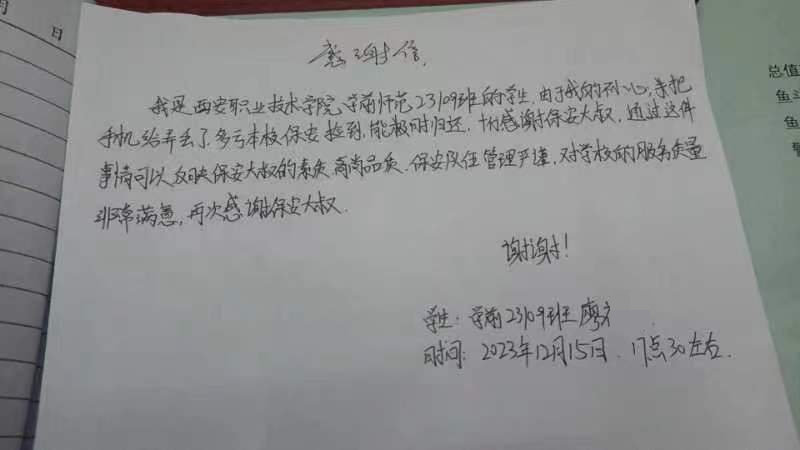 月
日
总值
鱼
鱼
感谢信
我是西安职业技术学院学前师范23109班的学生,由于我的不小心,来把
手机给弄丢了,多亏本校保安捡到,能及时归还,十分感谢保安大叔,通过这件
事情可以反映保安大叔的素质高尚品质,保安队伍管理严谨,对学校的服务质量
非常满意,再次感谢保安大叔.
谢谢!
学生:学前23109班 廖
时间:2023年12月15日.17点30左右.